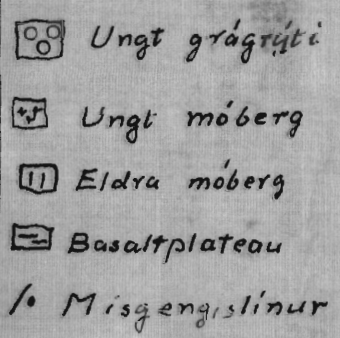 Ungt grágrýti
Ungt móberg
Eldra móberg
Basaltplateau
Misgengislínur